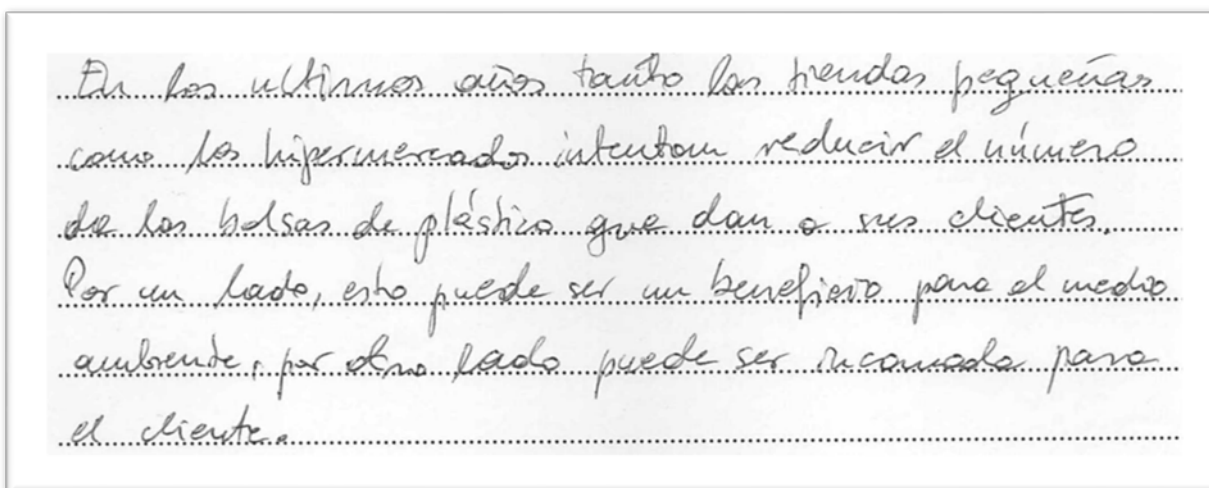 En los ultimos años tanto las tiendas pequeñas
como los hipermercados intentan reducir el número
de las bolsas de plástico que dan a sus clientes.
Por un lado, esto puede ser un beneficio para el medio
ambiente, por otro lado puede ser incomodo para
el cliente.